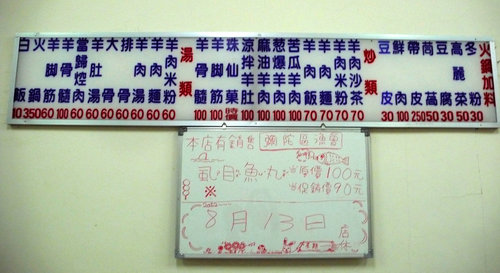 火鍋加料
冬粉 30
高麗菜 50
豆腐 30
茼蒿 50
帶皮 250
鮮肉 100
豆皮 30
炒類
羊肉沙茶 100
羊肉米粉 70
羊肉麵 70
羊肉飯 70
苦瓜羊肉 100
蔥爆羊肉 100
麻油羊肉 100
涼拌羊肉 100
羊腳筋 100
羊骨髓 100
湯類
羊肉米粉 60
羊肉麵 60
羊肉湯 60
排骨湯 60
大骨湯 60
羊肚湯 60
羊骨髓 100
羊腳筋 60
火鍋 350
白飯 10
本店有銷售 彌陀區漁會
虱目魚丸 原價100元
促銷價90元
※
8月13日 店休